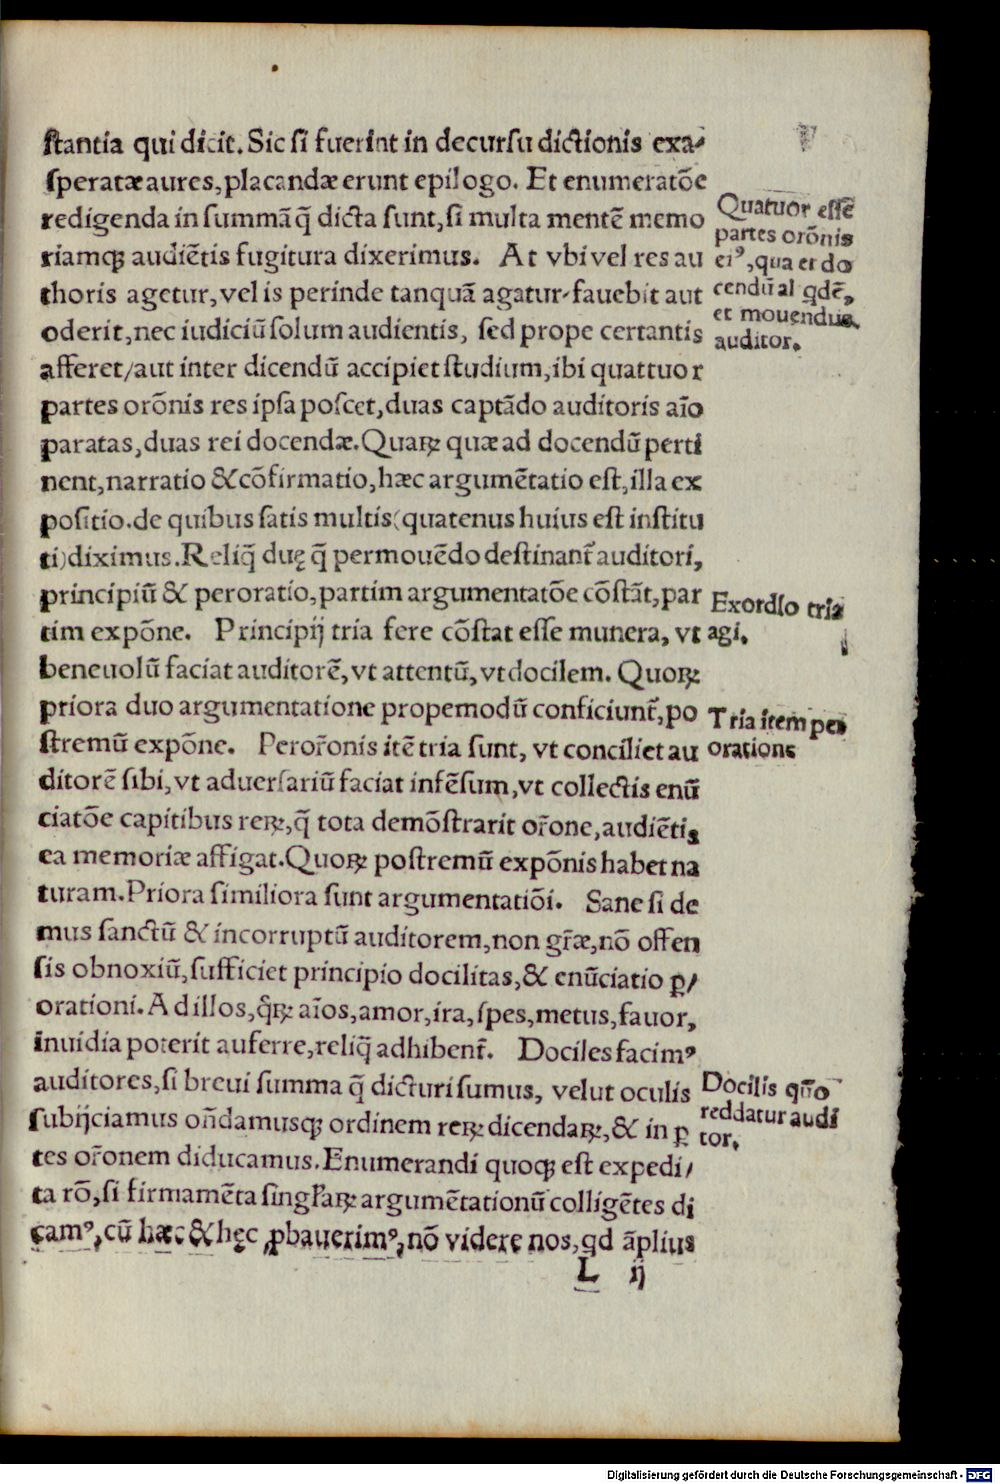 stantia qui dicit. Sic si fuerint in decursu dictionis exa⸗
speratæ aures, placandæ erunt epilogo. Et enumeratõe
redigenda in summã q̃ dicta sunt, si multa mentẽ memo
riamqꝫ audiẽtis fugitura dixerimus. At vbi vel res au
thoris agetur, vel is perinde tanquã agatur⸗fauebit aut
oderit, nec iudiciũ solum audientis, sed prope certantis
afferet/aut inter dicendũ accipiet studium, ibi quattuor
partes orõnis res ipsa poscet, duas captãdo auditoris aĩo
paratas, duas rei docendæ. Quaꝝ quæ ad docendũ perti
nent, narratio & cõfirmatio, hæc argumẽtatio est, illa ex
positio. de quibus satis multis (quatenus huius est institu
ti) diximus. Reliq̃ duę q̃ permouẽdo destinant̃ auditori,
principiũ & peroratio, partim argumentatõe cõstãt, par
tim expõne. Principij tria fere cõstat esse munera, vt
beneuolũ faciat auditorẽ, vt attentũ, vt docilem. Quoꝝ
priora duo argumentatione propemodũ conficiunt̃, po
stremũ expõne. Peror̃onis itẽ tria sunt, vt conciliet au
ditorẽ sibi, vt aduersariũ faciat infẽsum, vt collectis enũ
ciatõe capitibus reꝝ, q̃ tota demõstrarit or̃one, audiẽtis
ea memoriæ affigat. Quoꝝ postremũ expõnis habet na
turam. Priora similiora sunt argumentatiõi. Sane si de
mus sanctũ & incorruptũ auditorem, non gr̃æ, nõ offen
sis obnoxiũ, sufficiet principio docilitas, & enũciatio ꝑ/
orationi. Ad illos, q̃ꝝ aĩos, amor, ira, spes, metus, fauor,
inuidia poterit auferre, reliq̃ adhibent̃. Dociles facimꝰ
auditores, si breui summa q̃ dicturi sumus, velut oculis
subijciamus on̄damusqꝫ ordinem reꝝ dicendaꝝ, & in ꝑ
tes or̃onem diducamus. Enumerandi quoqꝫ est expedi/
ta rõ, si firmamẽta singĽaꝝ argumẽtationũ colligẽtes di
camꝰ, cũ hæc & hęc ꝓbauerimꝰ, nõ videre nos, qd ãplius
L ij
Quatuor essẽ
partes orõnis
eiꝰ, qua et do
cendũ al qdẽ,
et mouendus
auditor.
Exordio tria
agi.
Tria item per
orations
Docilis quõ
reddatur audi
tor.
Digitalisierung gefördert durch die Deutsche Forschungsgemeinschaft - DFG